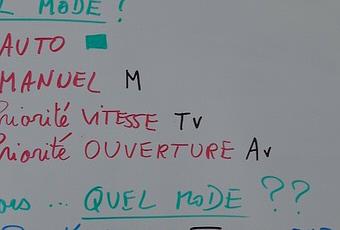 MODE ?
AUTO
MANUEL M
Priorité VITESSE Tv
Priorité OUVERTURE Av
... QUEL MODE ??